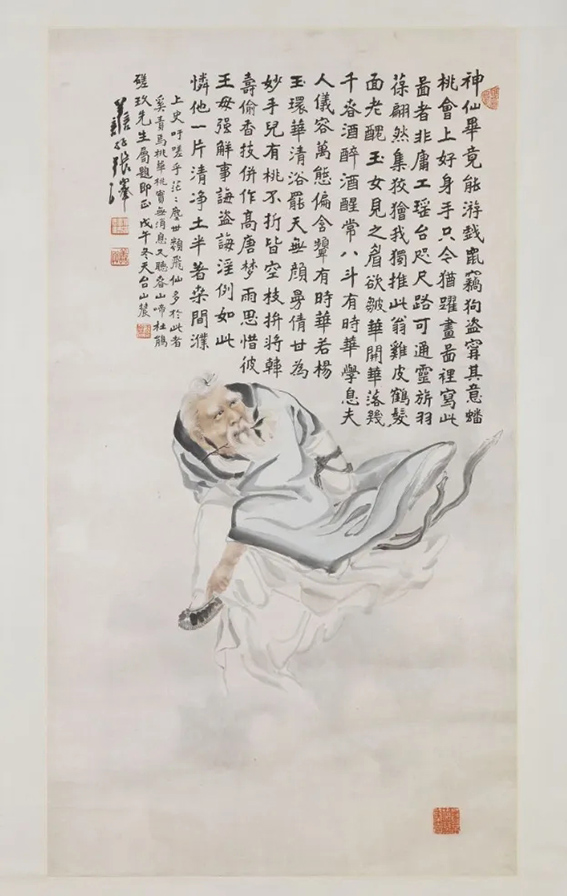 神仙畢竟能游戲鼠竊狗盜寧其意蟠
桃會上好身手只今猶躍畫啚裡寫此
啚者非庸工瑤台咫尺路可通靈旂羽
葆翩然集狡獪我獨推此翁雞皮鶴髮
面老醜玉女見之眉欲皺華開華落幾
千春酒醉酒醒常八斗有時華學息夫
人儀容萬態偏含顰有時華若楊
玉環華清浴罷天無顏曼倩甘為
妙手兒有桃不折皆空枝拚將韓
壽偷香技併作高唐夢雨思惜彼
王母强解事誨盜誨淫例如此
憐他一片清淨土半著桑間濮
上史吁嗟乎茫:塵世類飛仙多於此者
奚責焉桃華桃實無消息又聽春山啼杜鵑
玖先生屬題即正戊午冬天台山農